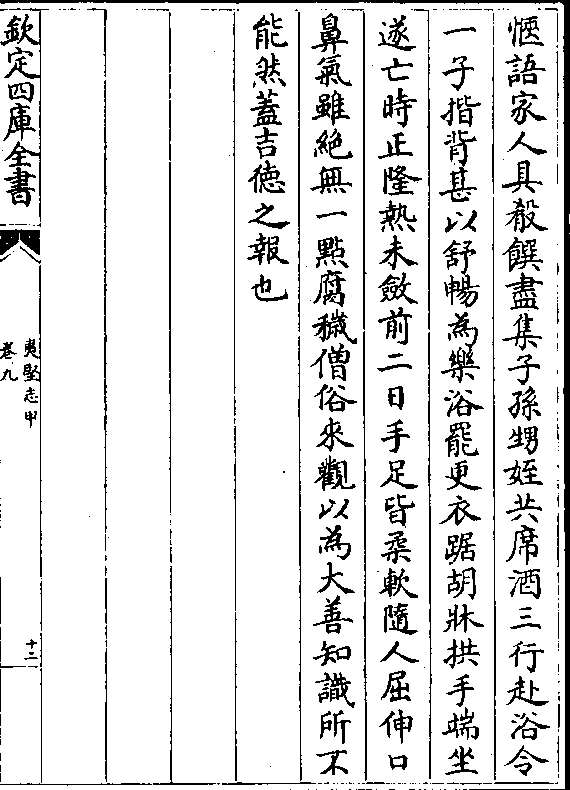 愜語家人具殽饌盡集子孫甥姪共席酒三行赴浴令
一子揩背甚以舒暢為樂浴罷更衣踞胡牀拱手端坐
遂亡時正隆熱未斂前二日手足皆柔軟隨人屈伸口
鼻氣雖絶無一點腐穢僧俗來觀以為大善知識所不
能然蓋吉徳之報也
欽定四庫全書
夷堅志甲
卷九
十二